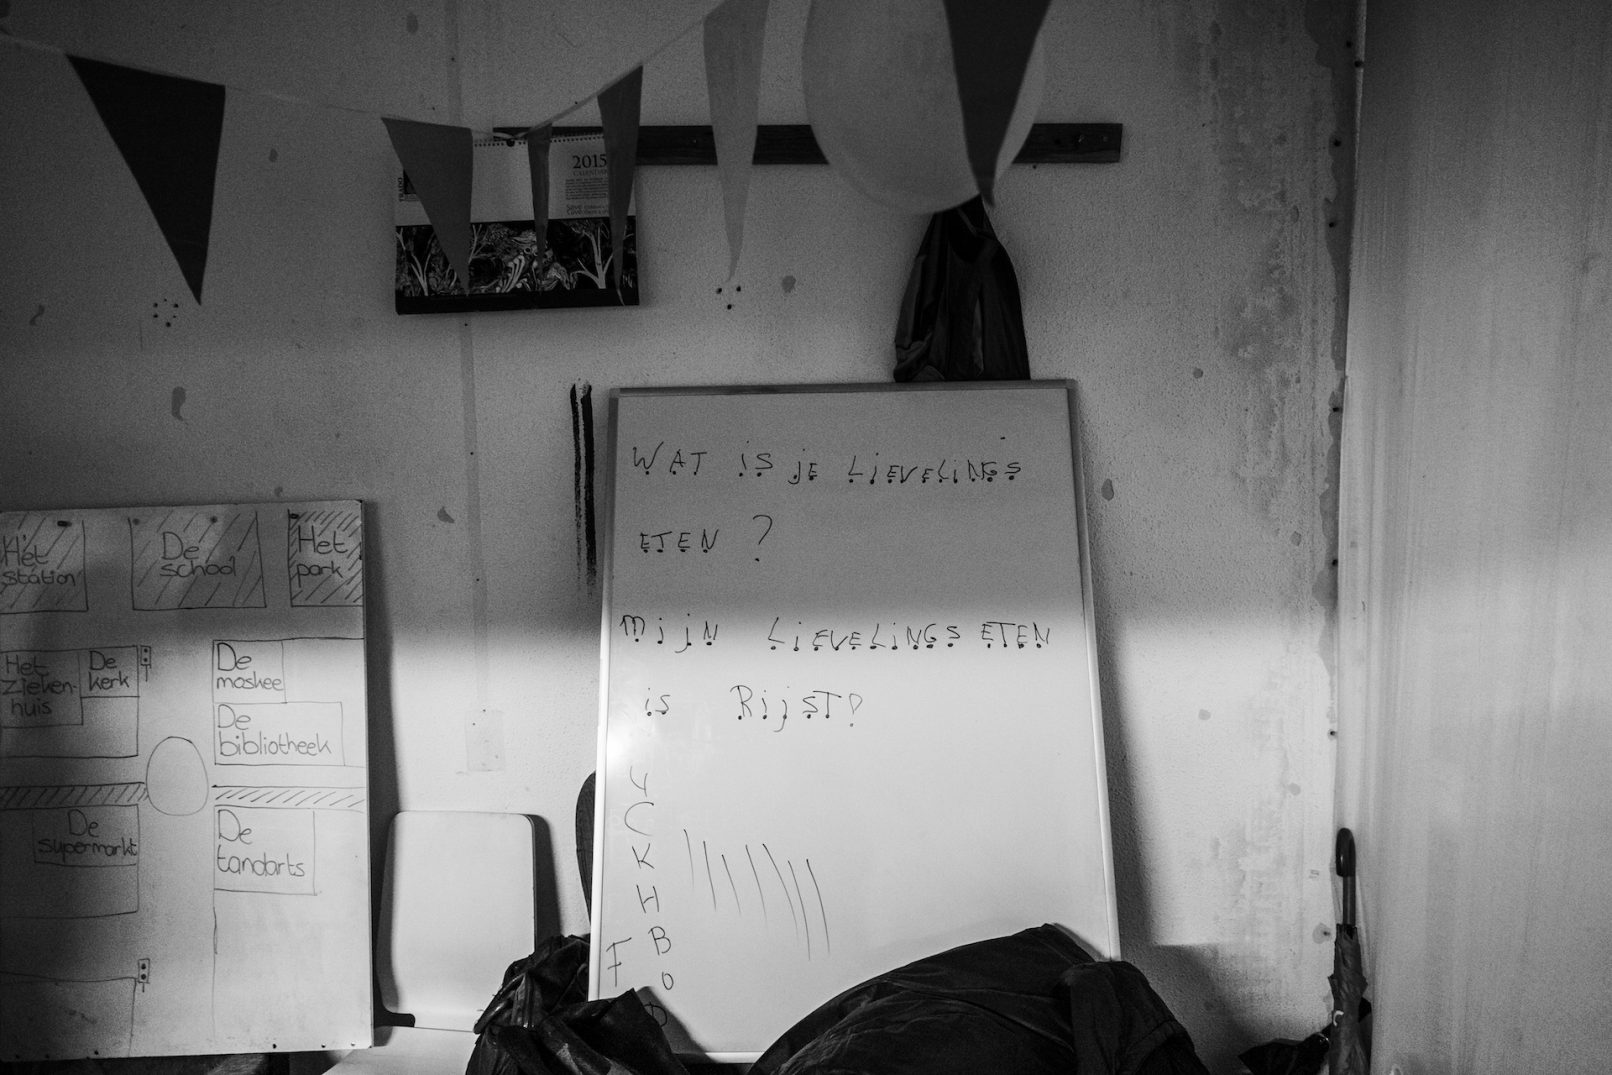 2015
CALENDAR
WAT IS JE LIEVELINGS
ETEN ?
MIJN LIEVELINGS ETEN
IS RIJST?
C
K
H
B
F
O
Het
station
De
school
Het
park
Het
Zieken-
huis
De
kerk
De
moskee
De
bibliotheek
De
supermarkt
De
tandarts